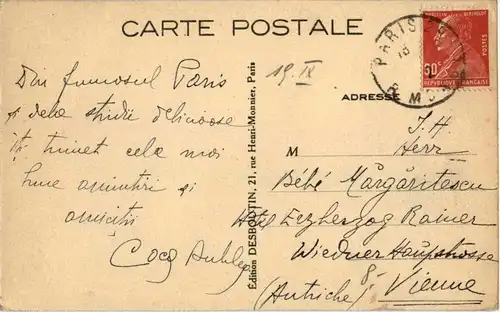 CARTE POSTALE
19. IX
Din frumosul Paris
și dela studii delicioase
îți trimet cele mai
bune amintiri și
Édition DESBOUTIN, 21, rue Henri-Monnier, Paris
PARIS
MARCELIN BERTHELOT
POSTES
90c
REPUBLIQUE FRANÇAISE
ADRESSE
J. H.
M Herr
Bébé Mărgăritescu
Hotel Erzherzog Rainer
Wiedner Hauptstrasse
8.-
(Autriche) Vienne